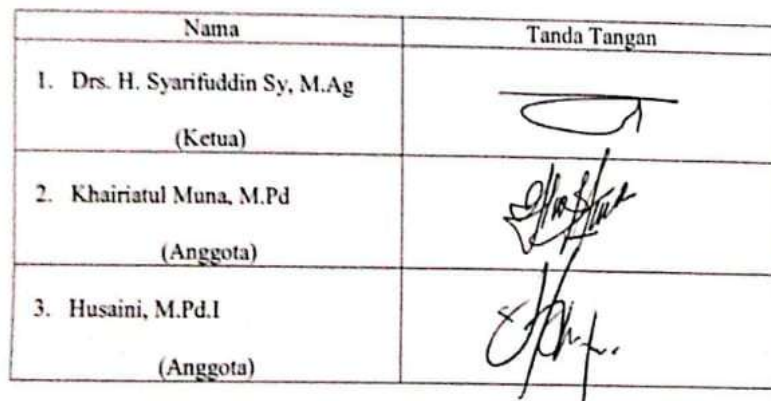 Nama Tanda Tangan
1. Drs. H. Syarifuddin Sy, M.Ag
(Ketua)
2. Khairiatul Muna, M.Pd
(Anggota)
3. Husaini, M.Pd.I
(Anggota)